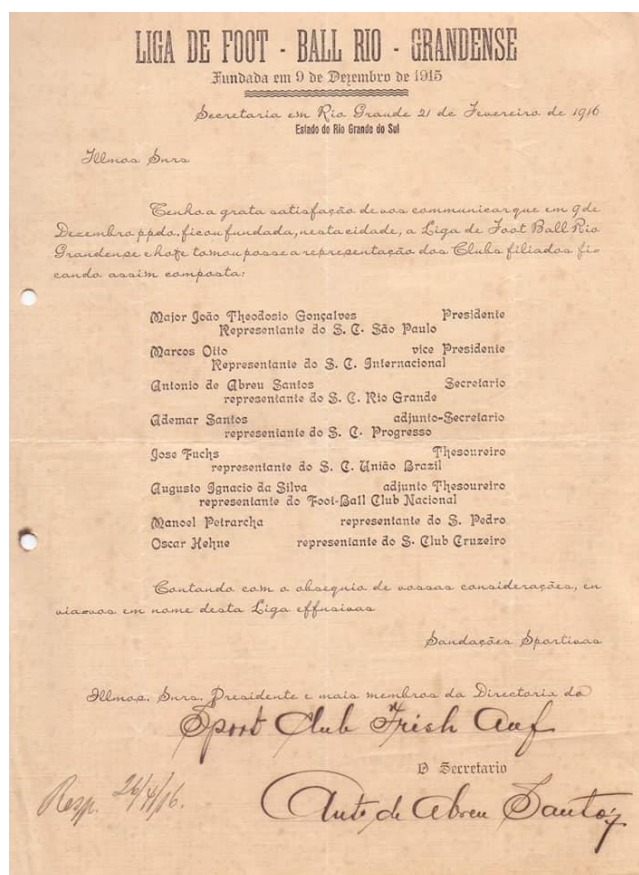 LIGA DE FOOT - BALL RIO - GRANDENSE
Fundada em 9 de Dezembro de 1915
Secretaria em Rio Grande 21 de Fevereiro de 1916
Estado do Rio Grande do Sul
Illmos Snrs
Tenho a grata satisfação de vos communicar que em 9 de
Dezembro ppdo. ficou fundada, nesta cidade, a Liga de Foot Ball Rio
Grandense e hoje tomou posse a representação dos Clubs filiados fi-
cando assim composta:
Major João Theodosio Gonçalves Presidente
Representante do S. C. São Paulo
Marcos Otto vice Presidente
Representante do S. C. Internacional
Antonio de Abreu Santos Secretario
representante do S. C. Rio Grande
Ademar Santos adjunto-Secretario
representante do S. C. Progresso
Jose Fuchs Thesoureiro
representante do S. C. União Brazil
Augusto Ignacio da Silva adjunto Thesoureiro
representante do Foot-Ball Club Nacional
Manoel Petrarcha representante do S. Pedro
Oscar Hehne representante do S. Club Cruzeiro
Contando com o obsequio de vossas considerações, en
via-vos em nome desta Liga effusivas
Saudações Sportivas
Illmos. Snrs. Presidente e mais membros da Directoria do
Sport Club Frish Auf
O Secretario
Resp. 26/4/16.
Anto de Abreu Santos